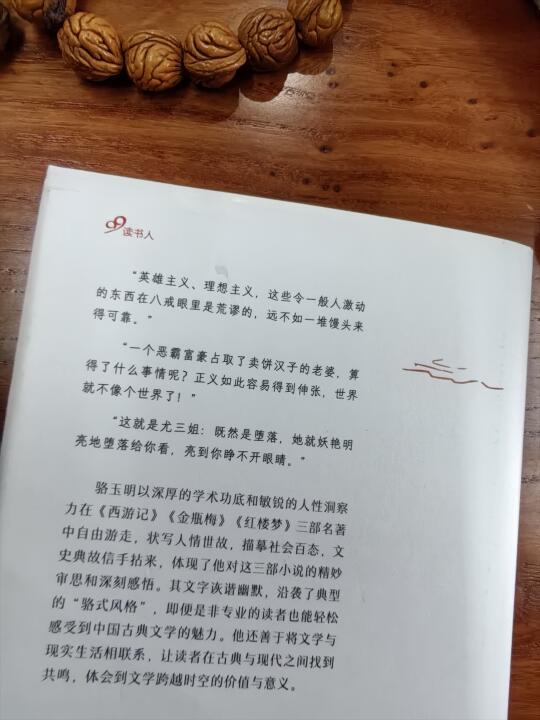 99读书人
“英雄主义、理想主义，这些令一般人激动
的东西在八戒眼里是荒谬的，远不如一堆馒头来
得可靠。”
“一个恶霸富豪占取了卖饼汉子的老婆，算
得了什么事情呢？正义如此容易得到伸张，世界
就不像个世界了！”
“这就是尤三姐：既然是堕落，她就妖艳明
亮地堕落给你看，亮到你睁不开眼睛。”
骆玉明以深厚的学术功底和敏锐的人性洞察
力在《西游记》《金瓶梅》《红楼梦》三部名著
中自由游走，状写人情世故，描摹社会百态，文
史典故信手拈来，体现了他对这三部小说的精妙
审思和深刻感悟。其文字诙谐幽默，沿袭了典型
的“骆式风格”，即便是非专业的读者也能轻松
感受到中国古典文学的魅力。他还善于将文学与
现实生活相联系，让读者在古典与现代之间找到
共鸣，体会到文学跨越时空的价值与意义。